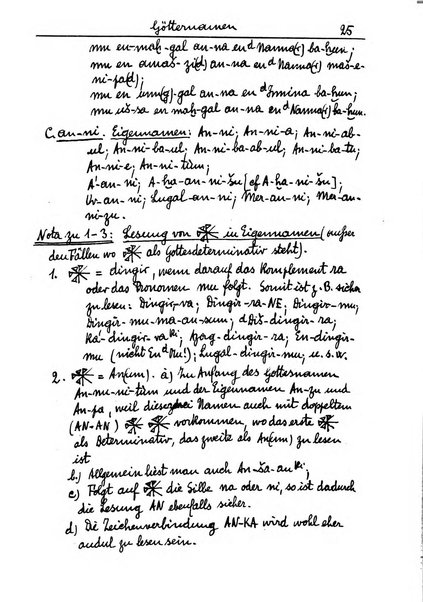 Götternamen 25
mu en-maḫ-gal an-na en ᵈNanna(r) ba-ḫun;
mu en amaš-zi(d) an-na en ᵈNanna(r) maš-e-
ni-pa(d);
mu en unu(g)-gal an-na en ᵈInnina ba-ḫun;
mu uš-sa en maḫ-gal an-na en ᵈNanna(r) ba-ḫun.
C. an-ni. Eigennamen: An-ni; An-ni-a; An-ni-ab-
ul; An-ni-ba-ul; An-ni-ba-ab-ul; An-ni-ba-tu;
An-ni-e; An-ni-tùm;
A-an-ni; A-ḫa-an-ni-šu [cf A-ḫa-ni-šu];
Ur-an-ni; Lugal-an-ni; Mer-an-ni; Mer-an-
ni-zu.
Nota zu 1-3: Lesung von 𒀭 in Eigennamen (außer
den Fällen wo 𒀭 als Gottesdeterminativ steht).
1. 𒀭 = dingir, wenn darauf das Komplement ra
oder das Pronomen mu folgt. Somit ist z. B. sicher
zu lesen: Dingir-ra; Dingir-ra-NE; Dingir-mu;
Dingir-mu-ma-an-sum; ᵈDiš-dingir-ra;
Ká-dingir-ra ᵏⁱ; Azag-dingir-ra; En-dingir-
mu (nicht En ᵈMu!); Lugal-dingir-mu, u. s. w.
2. 𒀭 = An(um). a) Zu Anfang des Götternamen
An-nu-ni-tùm und der Eigennamen An-zu und
An-pa, weil diese zwei Namen auch mit doppeltem
(AN-AN) 𒀭 𒀭 vorkommen, wo das erste 𒀭
als Determinativ, das zweite als An(um) zu lesen
ist
b) Allgemein liest man auch An-ša-an ᵏⁱ;
c) Folgt auf 𒀭 die Silbe na oder ni, so ist dadurch
die Lesung AN ebenfalls sicher.
d) Die Zeichenverbindung AN-KA wird wohl eher
andul zu lesen sein.